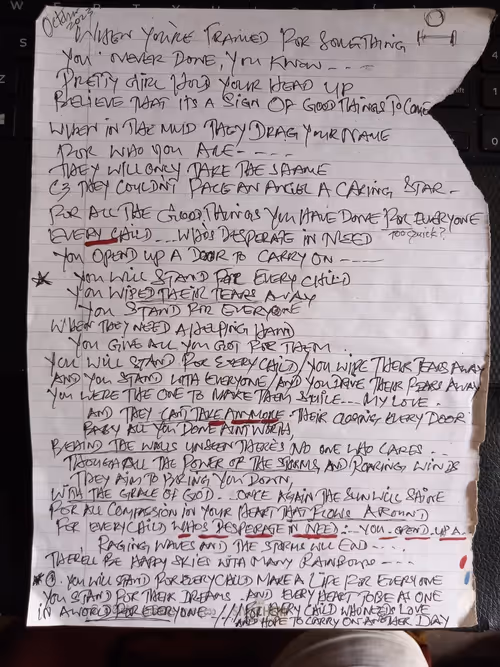 October 2023
WHEN YOU'RE TRAILED FOR SOMETHING
YOU NEVER DONE, YOU KNOW....
PRETTY GIRL HOLD YOUR HEAD UP
BELIEVE THAT ITS A SIGN OF GOOD THINGS TO COME
WHEN IN THE MUD THEY DRAG YOUR NAME
FOR WHO YOU ARE-----
THEY WILL ONLY TAKE THE SHAME
THEY COULDN'T FACE AN ANGEL A CARING STAR-
FOR ALL THE GOOD, THINGS YOU HAVE DONE FOR EVERYONE
EVERY CHILD... WHO'S DESPERATE IN NEED too quick?
YOU OPEND UP A DOOR TO CARRY ON----
* YOU WILL STAND FOR EVERY CHILD
YOU WIPED THEIR TEARS AWAY
YOU STAND FOR EVERYONE
WHEN THEY NEED A HELPING HAND
YOU GIVE ALL YOU GOT FOR THEM.
YOU WILL STAND FOR EVERY CHILD / YOU WIPE THEIR TEARS AWAY
AND YOU STAND WITH EVERYONE / AND YOU DRIVE THEIR FEARS AWAY
YOU WERE THE ONE TO MAKE THEM SMILE... MY LOVE.
AND THEY CAN'T TAKE ANYMORE. THEIR CLOSING EVERY DOOR
BABY ALL YOU DONE AIN'T WORTH,
BEHIND THE WALLS UNSEEN THERE'S NO ONE WHO CARES..
THOUGH ALL THE POWER OF THE STORMS, AND ROARING WINDS
THEY AIM TO BRING YOU DOWN,
WITH THE GRACE OF GOD... ONCE AGAIN THE SUN WILL SHINE
FOR ALL COMPASSION IN YOUR HEART THAT FLOWS AROUND
FOR EVERY CHILD WHO'S DESPERATE IN NEED:. YOU OPEND UP A.
RAGING WAVES AND THE STORMS WILL END....
THERE'LL BE HAPPY SKIES WITH MANY RAINBOWS----
* ①. YOU WILL STAND FOR EVERY CHILD MAKE A LIFE FOR EVERYONE
YOU STAND FOR THEIR DREAMS. AND EVERY HEART TO BE AS ONE
IN A WORLD FOR EVERYONE /// FOR EVERY CHILD WHO NEEDS LOVE
AND HOPE TO CARRY ON ANOTHER DAY